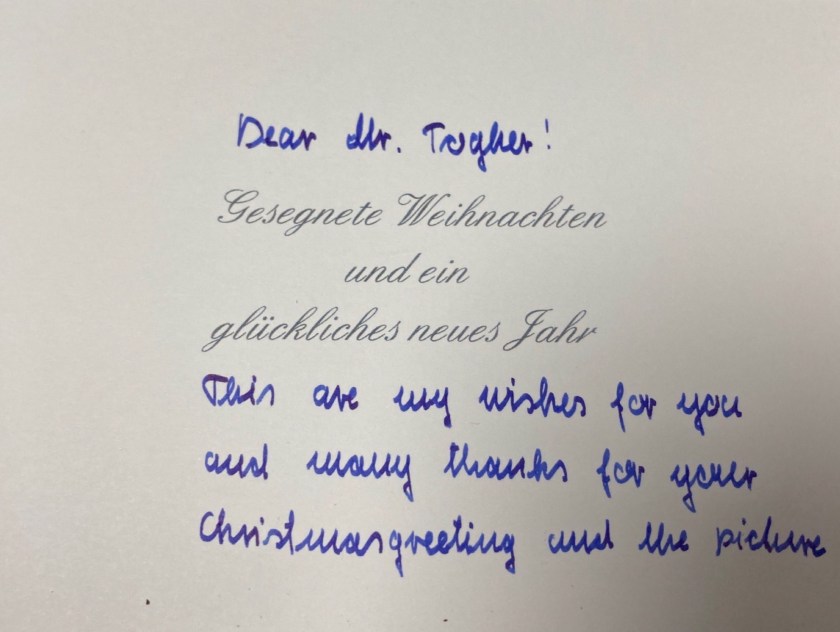 Dear Mr. Togher!
Gesegnete Weihnachten
und ein
glückliches neues Jahr
This are my wishes for you
and many thanks for your
Christmasgreeting and the picture